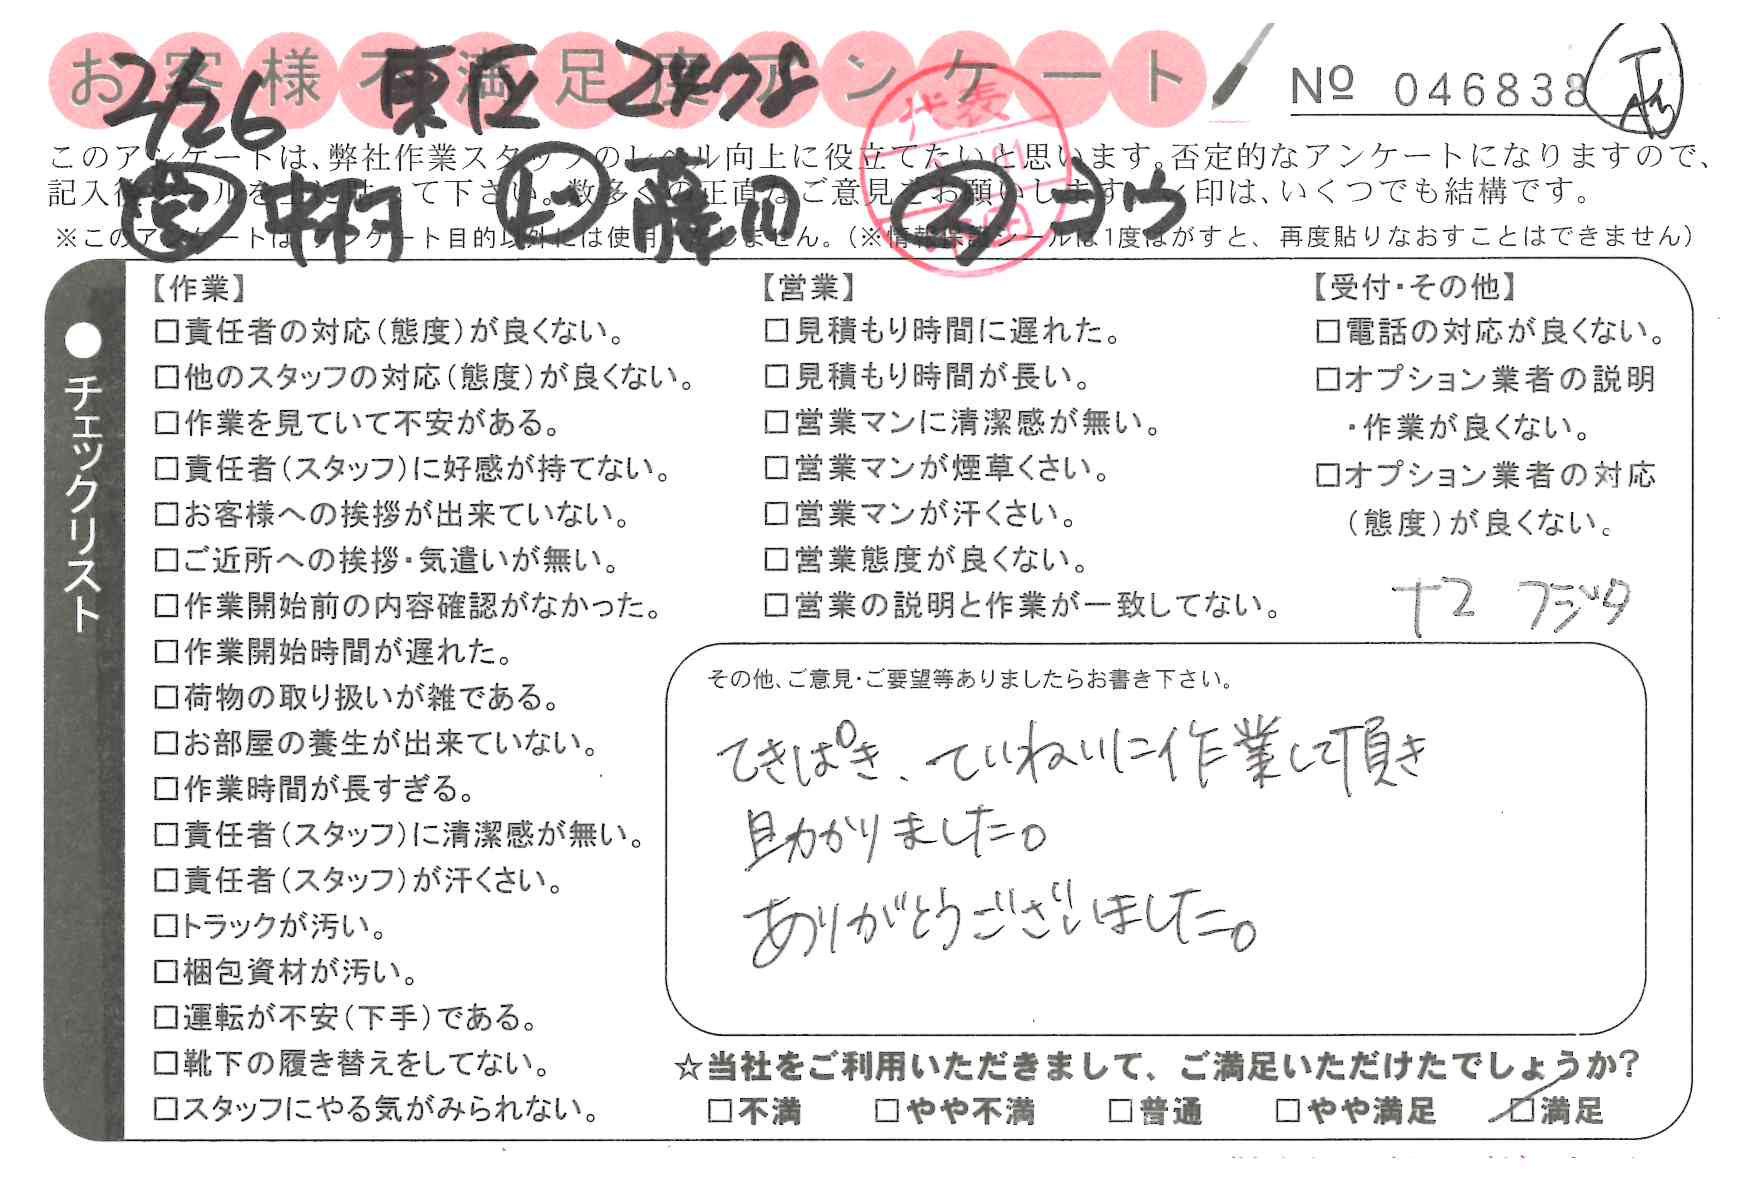 お客様不満足度アンケート
Nº 046838
2/26 東区
このアンケートは、弊社作業スタッフのレベル向上に役立てたいと思います。否定的なアンケートになりますので、
記入後シールを上に貼って下さい。数多くの正直なご意見をお願いします。レ印は、いくつでも結構です。
中村 藤田 コウ
※このアンケートは、アンケート目的以外には使用いたしません。(※情報保護シールは1度はがすと、再度貼りなおすことはできません)
代表
●チェックリスト
【作業】
□責任者の対応(態度)が良くない。
□他のスタッフの対応(態度)が良くない。
□作業を見ていて不安がある。
□責任者(スタッフ)に好感が持てない。
□お客様への挨拶が出来ていない。
□ご近所への挨拶・気遣いが無い。
□作業開始前の内容確認がなかった。
□作業開始時間が遅れた。
□荷物の取り扱いが雑である。
□お部屋の養生が出来ていない。
□作業時間が長すぎる。
□責任者(スタッフ)に清潔感が無い。
□責任者(スタッフ)が汗くさい。
□トラックが汚い。
□梱包資材が汚い。
□運転が不安(下手)である。
□靴下の履き替えをしてない。
□スタッフにやる気がみられない。
【営業】
□見積もり時間に遅れた。
□見積もり時間が長い。
□営業マンに清潔感が無い。
□営業マンが煙草くさい。
□営業マンが汗くさい。
□営業態度が良くない。
□営業の説明と作業が一致してない。
【受付・その他】
□電話の対応が良くない。
□オプション業者の説明
・作業が良くない。
□オプション業者の対応
(態度)が良くない。
フジタ
その他、ご意見・ご要望等ありましたらお書き下さい。
てきぱき、ていねいに作業して頂き
助かりました。
ありがとうございました。
☆当社をご利用いただきまして、ご満足いただけたでしょうか?
□不満 □やや不満 □普通 □やや満足 □満足